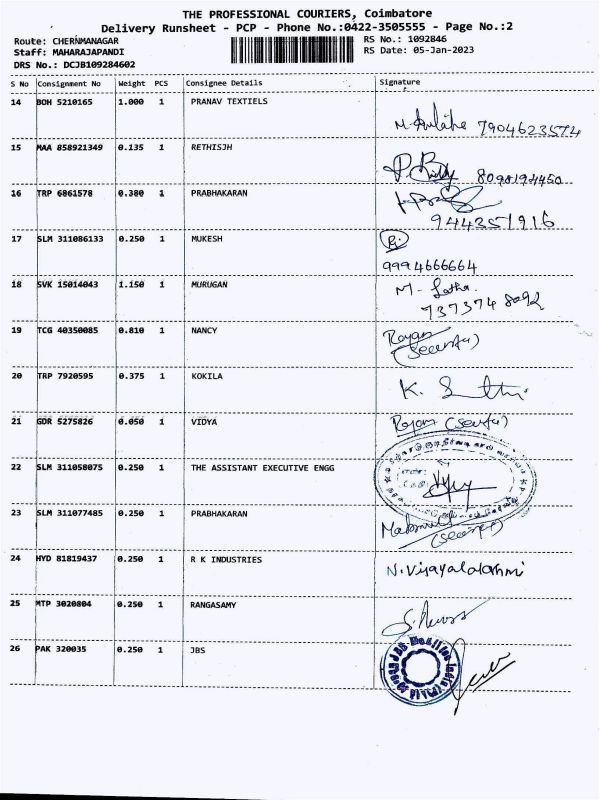 THE PROFESSIONAL COURIERS, Coimbatore
Delivery Runsheet - PCP - Phone No.:0422-3505555 - Page No.:2
Route: CHERNMANAGAR RS No.: 1092846
Staff: MAHARAJAPANDI RS Date: 05-Jan-2023
DRS No.: DCJB109284602
S No Consignment No Weight PCS Consignee Details Signature
14 BOH 5210165 1.000 1 PRANAV TEXTIELS
7904623574
15 MAA 858921349 0.135 1 RETHISJH
8098194450
16 TRP 6861578 0.380 1 PRABHAKARAN
9443351916
17 SLM 311086133 0.250 1 MUKESH
9994666664
18 SVK 15014043 1.150 1 MURUGAN M. Latha.
737374 8092
19 TCG 40350085 0.810 1 NANCY Rajan
(Security)
20 TRP 7920595 0.375 1 KOKILA
21 GDR 5275826 0.050 1 VIDYA Rajan (Security)
22 SLM 311058075 0.250 1 THE ASSISTANT EXECUTIVE ENGG
23 SLM 311077485 0.250 1 PRABHAKARAN
(Security)
24 HYD 81819437 0.250 1 R K INDUSTRIES N. Vijayalakshmi
25 MTP 3020804 0.250 1 RANGASAMY
26 PAK 320035 0.250 1 JBS